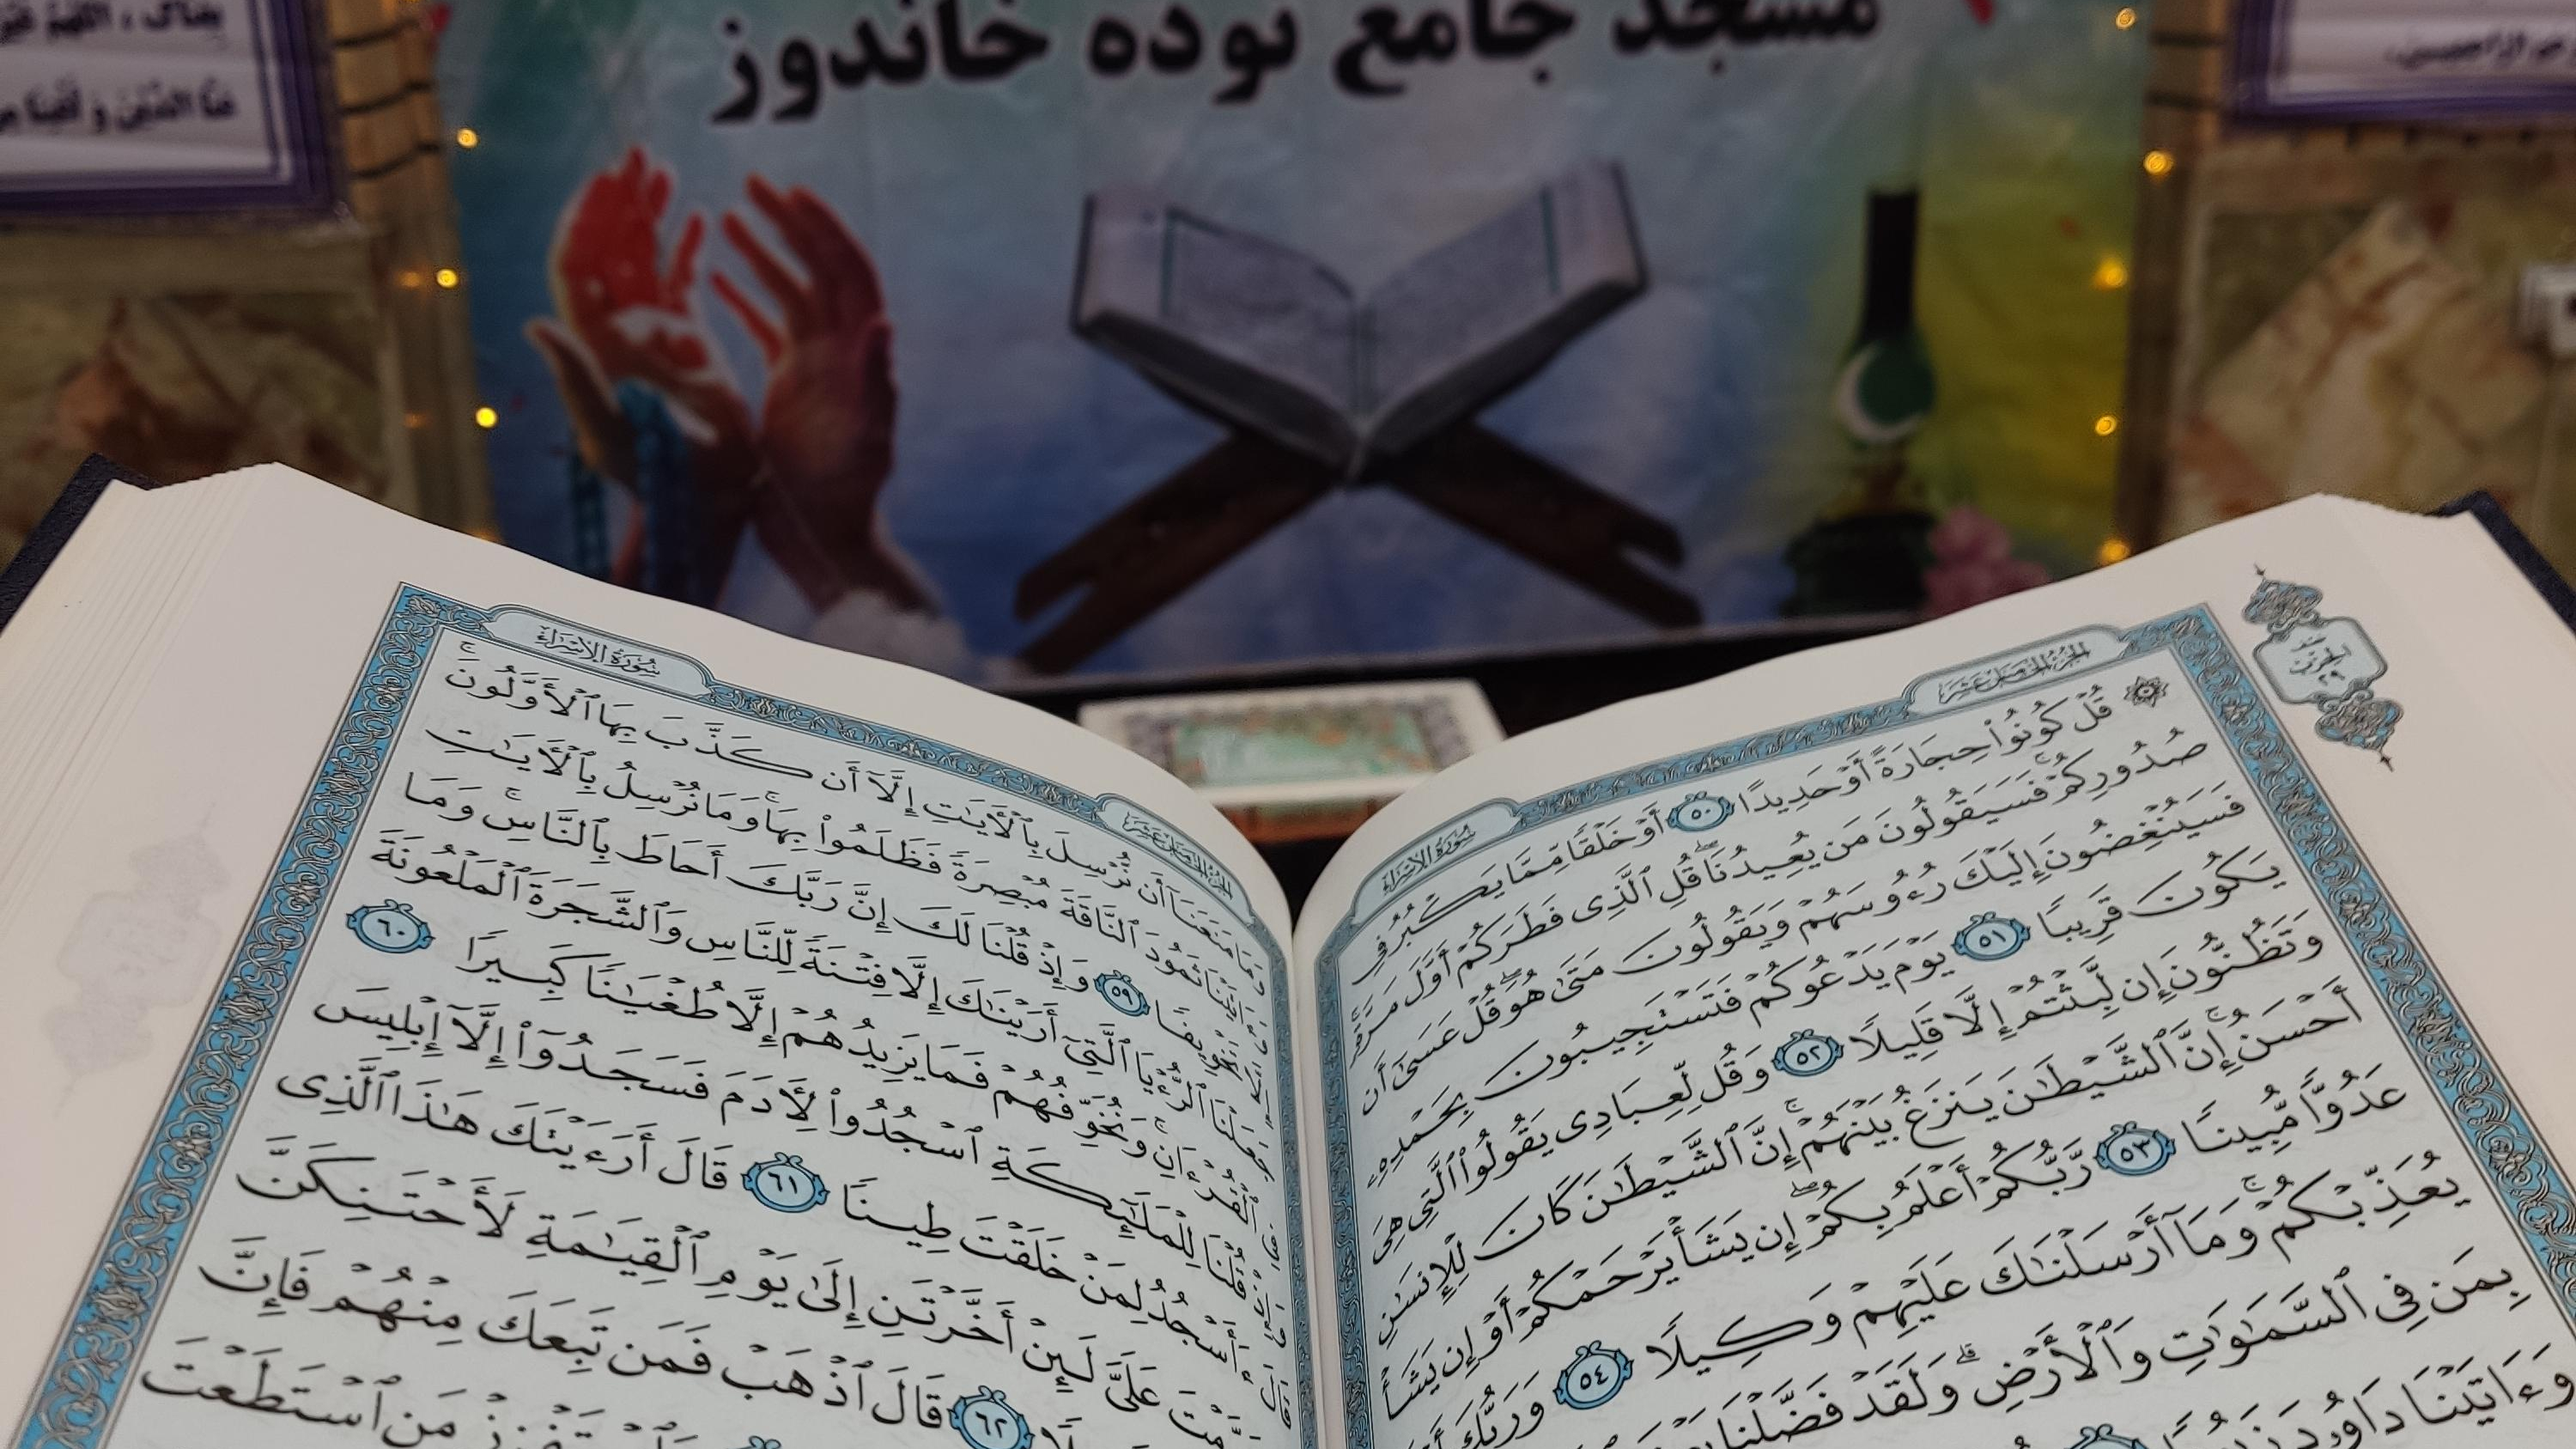 مسجد جامع نوده خاندوز
الجزء الخامس عشر
سورة الإسراء
الحزب
٢٩
۞ قُلۡ كُونُواْ حِجَارَةً أَوۡ حَدِيدًا ٥٠ أَوۡ خَلۡقٗا مِّمَّا يَكۡبُرُ فِي
صُدُورِكُمۡۚ فَسَيَقُولُونَ مَن يُعِيدُنَاۖ قُلِ ٱلَّذِي فَطَرَكُمۡ أَوَّلَ مَرَّةٖۚ
فَسَيُنۡغِضُونَ إِلَيۡكَ رُءُوسَهُمۡ وَيَقُولُونَ مَتَىٰ هُوَۖ قُلۡ عَسَىٰٓ أَن
يَكُونَ قَرِيبٗا ٥١ يَوۡمَ يَدۡعُوكُمۡ فَتَسۡتَجِيبُونَ بِحَمۡدِهِۦ
وَتَظُنُّونَ إِن لَّبِثۡتُمۡ إِلَّا قَلِيلٗا ٥٢ وَقُل لِّعِبَادِي يَقُولُواْ ٱلَّتِي هِيَ
أَحۡسَنُۚ إِنَّ ٱلشَّيۡطَٰنَ يَنزَغُ بَيۡنَهُمۡۚ إِنَّ ٱلشَّيۡطَٰنَ كَانَ لِلۡإِنسَٰنِ
عَدُوّٗا مُّبِينٗا ٥٣ رَّبُّكُمۡ أَعۡلَمُ بِكُمۡۖ إِن يَشَأۡ يَرۡحَمۡكُمۡ أَوۡ إِن يَشَأۡ
يُعَذِّبۡكُمۡۚ وَمَآ أَرۡسَلۡنَٰكَ عَلَيۡهِمۡ وَكِيلٗا ٥٤ وَرَبُّكَ
بِمَن فِي ٱلسَّمَٰوَٰتِ وَٱلۡأَرۡضِۗ وَلَقَدۡ فَضَّلۡنَا
وَءَاتَيۡنَا دَاوُۥدَ
سورة الإسراء
الجزء الخامس عشر
وَمَا مَنَعَنَآ أَن نُّرۡسِلَ بِٱلۡأٓيَٰتِ إِلَّآ أَن كَذَّبَ بِهَا ٱلۡأَوَّلُونَۚ
ثَمُودَ ٱلنَّاقَةَ مُبۡصِرَةٗ فَظَلَمُواْ بِهَاۚ وَمَا نُرۡسِلُ بِٱلۡأٓيَٰتِ
٥٩ وَإِذۡ قُلۡنَا لَكَ إِنَّ رَبَّكَ أَحَاطَ بِٱلنَّاسِۚ وَمَا
ٱلَّتِيٓ أَرَيۡنَٰكَ إِلَّا فِتۡنَةٗ لِّلنَّاسِ وَٱلشَّجَرَةَ ٱلۡمَلۡعُونَةَ
وَنُخَوِّفُهُمۡ فَمَا يَزِيدُهُمۡ إِلَّا طُغۡيَٰنٗا كَبِيرٗا ٦٠
قُلۡنَا لِلۡمَلَٰٓئِكَةِ ٱسۡجُدُواْ لِأٓدَمَ فَسَجَدُوٓاْ إِلَّآ إِبۡلِيسَ
ءَأَسۡجُدُ لِمَنۡ خَلَقۡتَ طِينٗا ٦١ قَالَ أَرَءَيۡتَكَ هَٰذَا ٱلَّذِي
عَلَيَّ لَئِنۡ أَخَّرۡتَنِ إِلَىٰ يَوۡمِ ٱلۡقِيَٰمَةِ لَأَحۡتَنِكَنَّ
٦٢ قَالَ ٱذۡهَبۡ فَمَن تَبِعَكَ مِنۡهُمۡ فَإِنَّ
مَنِ ٱسۡتَطَعۡتَ